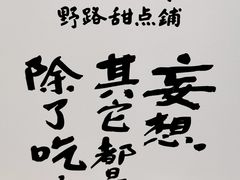 野路甜点鋪
除了吃
其它都是
妄想